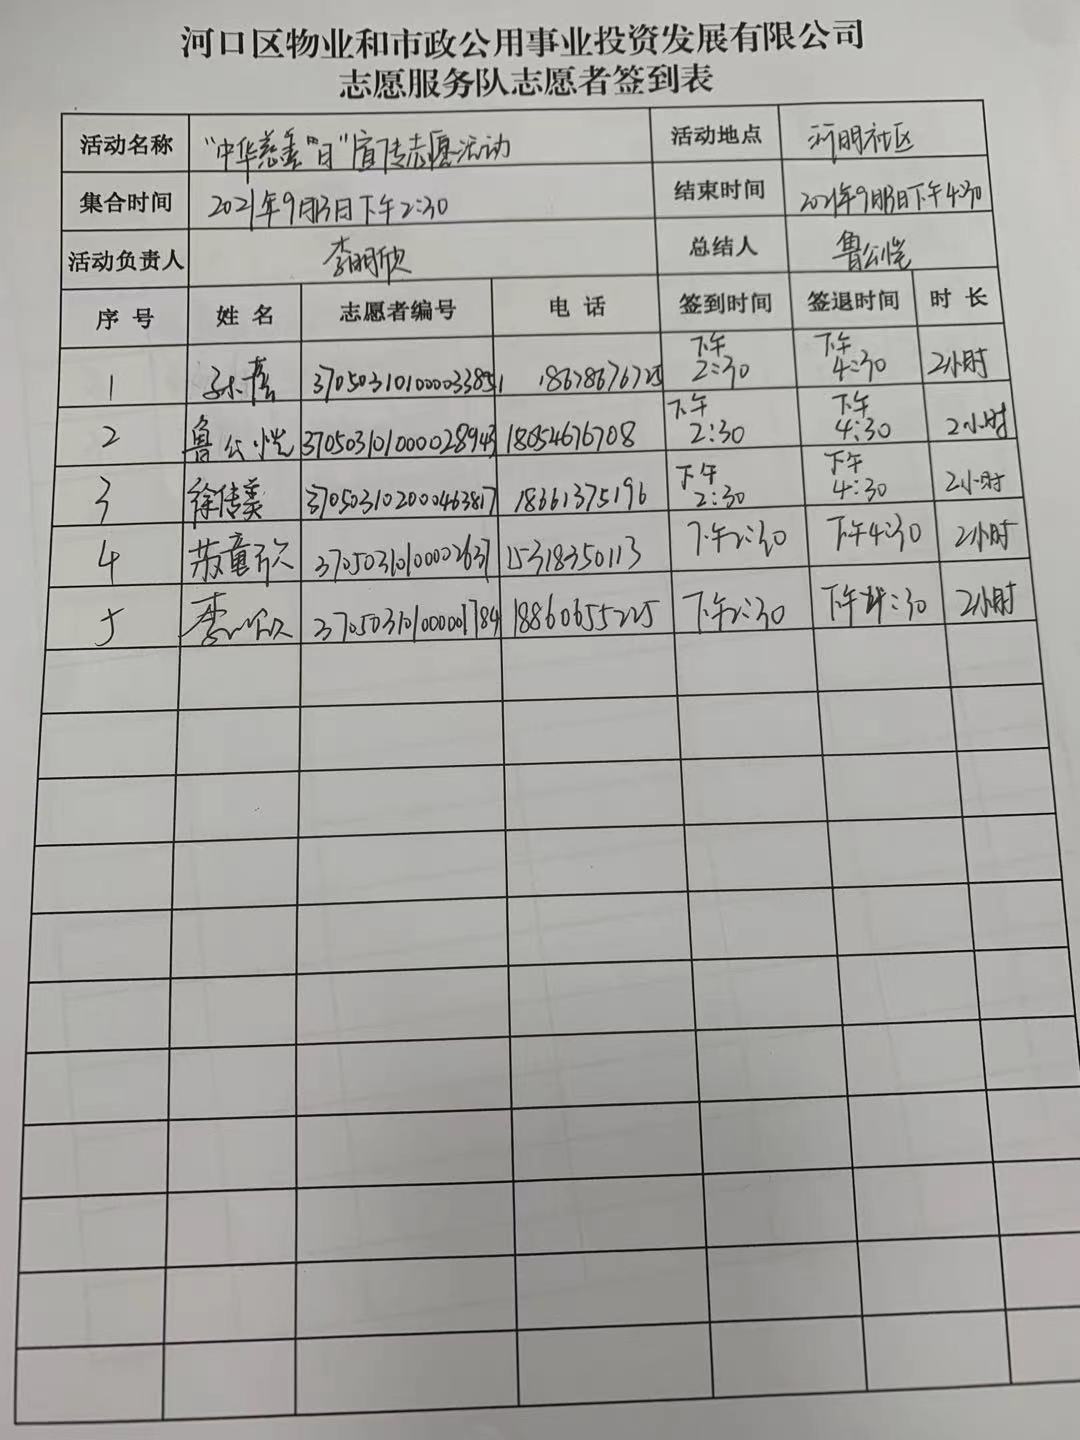 河口区物业和市政公用事业投资发展有限公司
志愿服务队志愿者签到表
活动名称 "中华慈善"日"宣传志愿活动 活动地点 河明社区
集合时间 2021年9月13日下午2:30 结束时间 2021年9月13日下午4:30
活动负责人 李明欣 总结人 鲁公恺
序号 姓名 志愿者编号 电话 签到时间 签退时间 时长
1 370503101000033851 18678676725 下午2:30 下午4:30 2小时
2 鲁公恺 370503101000028943 18654676708 下午2:30 下午4:30 2小时
3 徐传美 370503102000463817 18661375196 下午2:30 下午4:30 2小时
4 苏童欣 37050310100002637 15318350113 下午2:30 下午4:30 2小时
5 37050310100001784 18860655225 下午2:30 下午4:30 2小时